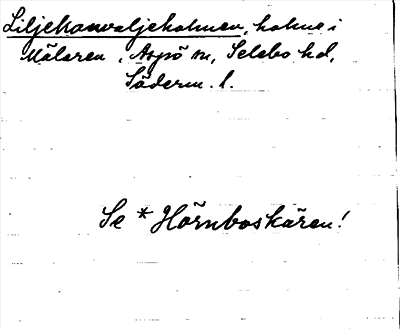 Liljekonvaljeholmen, holme i
Mälaren, Aspö sn, Selebo hd,
Söderm. l.
Se * Hörnboskären!